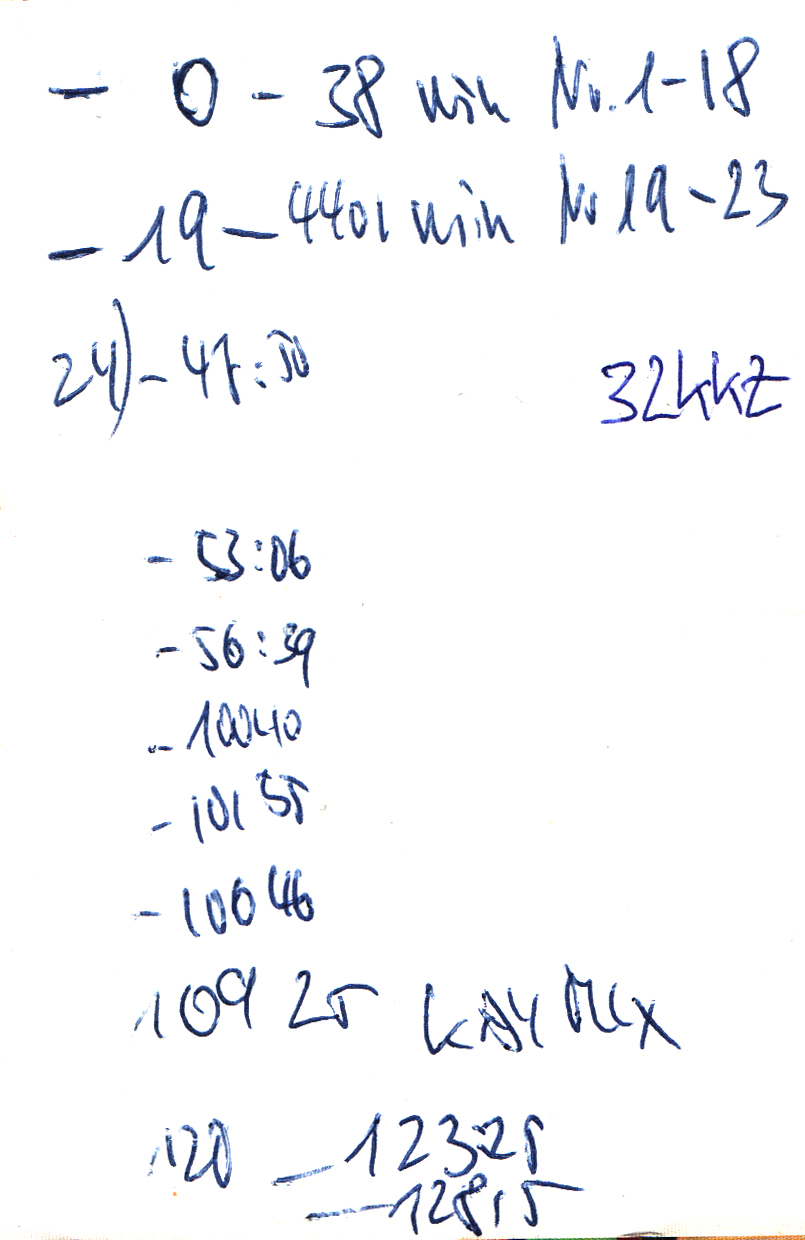 - 0 - 38 min Nr. 1-18
- 19 - 4401 min Nr 19-23
24) - 47:50
32kHz
- 53:06
- 56:39
- 10040
- 101 55
- 106 46
109 25 KAY MIX
120 - 123:25
- 128,5